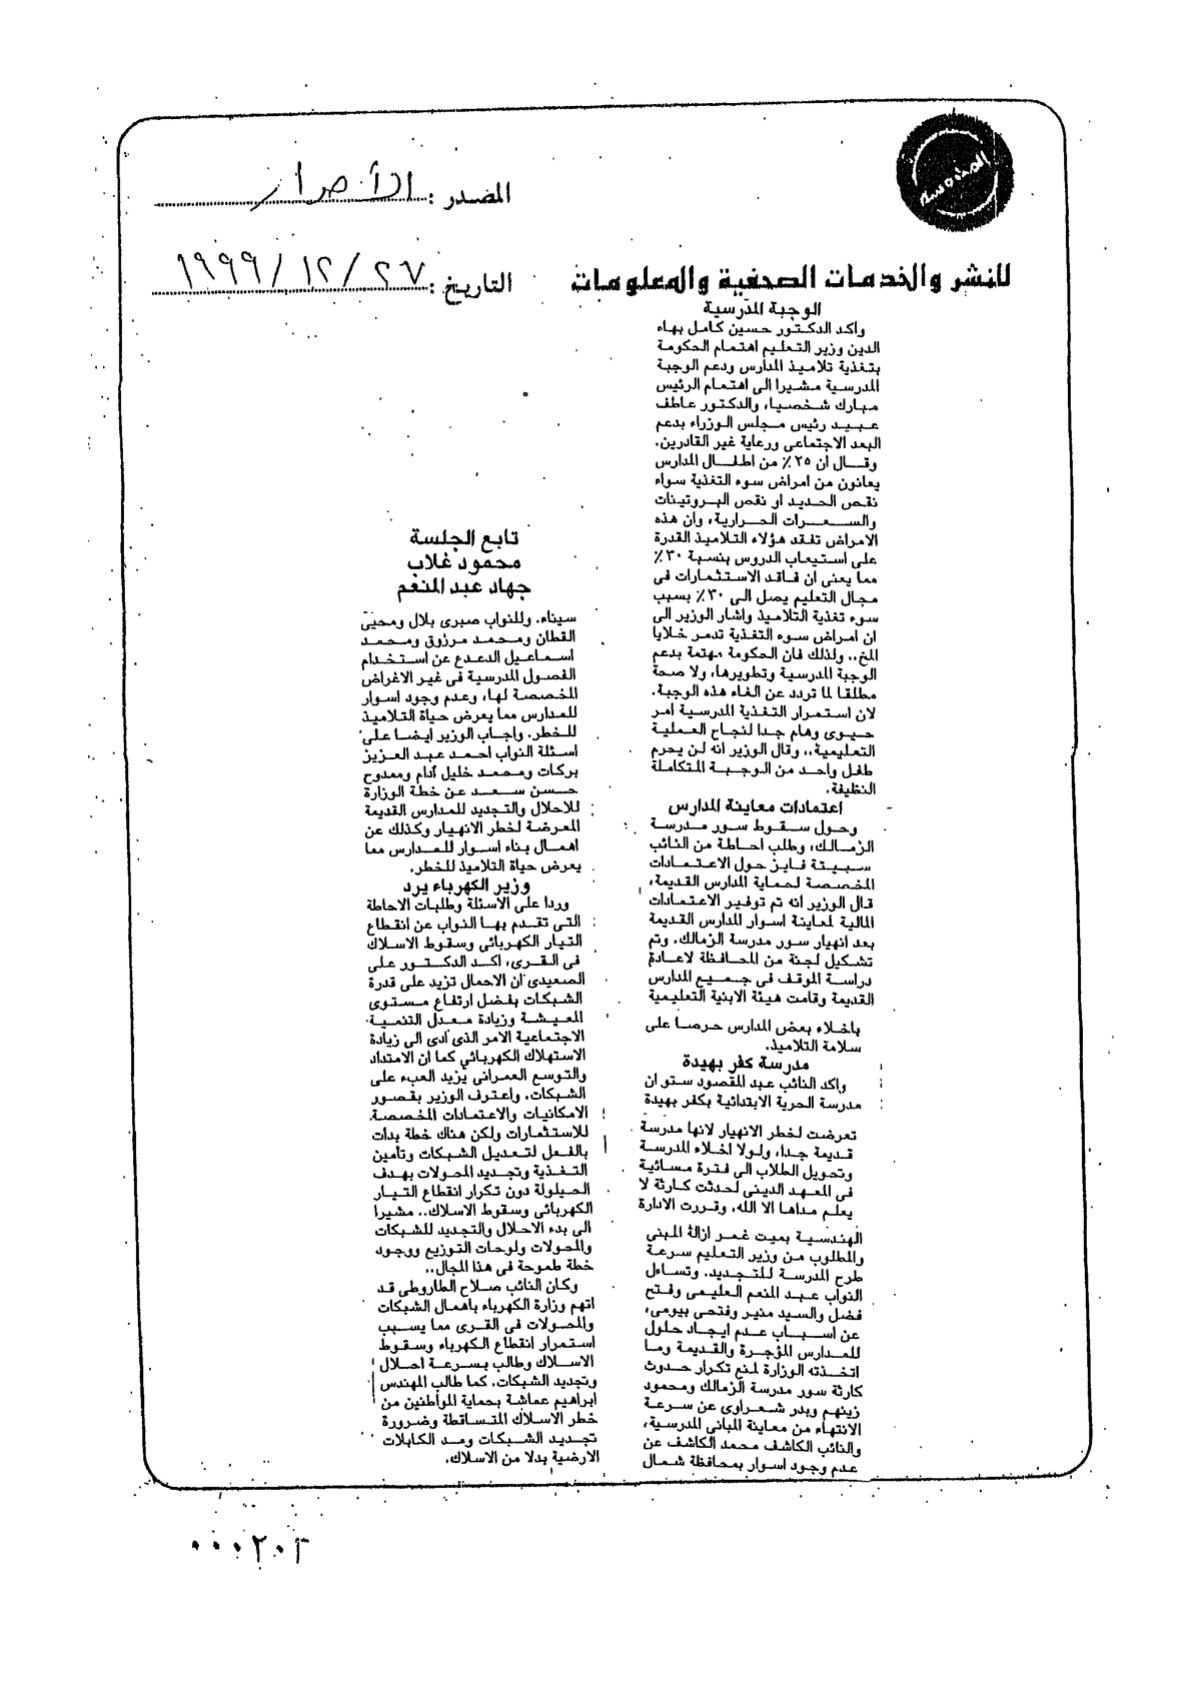 المصدر : الأحرار
التاريخ : ٢٧ / ١٢ / ١٩٩٩
للنشر والخدمات الصحفية والمعلومات
الوجبة المدرسية
واكد الدكتور حسين كامل بهاء
الدين وزير التعليم اهتمام الحكومة
بتغذية تلاميذ المدارس ودعم الوجبة
المدرسية مشيرا الى اهتمام الرئيس
مبارك شخصيا، والدكتور عاطف
عبيد رئيس مجلس الوزراء بدعم
البعد الاجتماعى ورعاية غير القادرين.
وقال ان ٢٥٪ من اطفال المدارس
يعانون من امراض سوء التغذية سواء
نقص الحديد او نقص البروتينات
والسعرات الحرارية، وان هذه
الامراض تفقد هؤلاء التلاميذ القدرة
على استيعاب الدروس بنسبة ٣٠٪
مما يعنى ان فاقد الاستثمارات فى
مجال التعليم يصل الى ٣٠٪ بسبب
سوء تغذية التلاميذ واشار الوزير الى
ان امراض سوء التغذية تدمر خلايا
المخ.. ولذلك فان الحكومة مهتمة بدعم
الوجبة المدرسية وتطويرها، ولا صحة
مطلقا لما تردد عن الغاء هذه الوجبة.
لان استمرار التغذية المدرسية امر
حيوى وهام جدا لنجاح العملية
التعليمية.. وقال الوزير انه لن يحرم
طفل واحد من الوجبة المتكاملة
النظيفة.
اعتمادات معاينة المدارس
وحول سقوط سور مدرسة
الزمالك، وطلب احاطة من النائب
سبيتة فايز حول الاعتمادات
المخصصة لحماية المدارس القديمة،
قال الوزير انه تم توفير الاعتمادات
المالية لمعاينة اسوار المدارس القديمة
بعد انهيار سور مدرسة الزمالك. وتم
تشكيل لجنة من المحافظة لاعادة
دراسة الموقف فى جميع المدارس
القديمة وقامت هيئة الابنية التعليمية
باخلاء بعض المدارس حرصا على
سلامة التلاميذ.
مدرسة كفر بهيدة
واكد النائب عبد المقصود ستو ان
مدرسة الحرية الابتدائية بكفر بهيدة
تعرضت لخطر الانهيار لانها مدرسة
قديمة جدا، ولولا اخلاء المدرسة
وتحويل الطلاب الى فترة مسائية
فى المعهد الدينى لحدثت كارثة لا
يعلم مداها الا الله، وقررت الادارة
الهندسية بميت غمر ازالة المبنى
والمطلوب من وزير التعليم سرعة
طرح المدرسة للتجديد. وتساءل
النواب عبد المنعم العليمى وفتح
فضل والسيد منير وفتحى بيومى،
عن اسباب عدم ايجاد حلول
للمدارس المؤجرة والقديمة وما
اتخذته الوزارة لمنع تكرار حدوث
كارثة سور مدرسة الزمالك ومحمود
زينهم وبدر شعراوى عن سرعة
الانتهاء من معاينة المبانى المدرسية،
والنائب الكاشف محمد الكاشف عن
عدم وجود اسوار بمحافظة شمال
تابع الجلسة
محمود غلاب
جهاد عبد المنعم
سيناء. وللنواب صبرى بلال ومحيى
القطان ومحمد مرزوق ومحمد
اسماعيل الدعدع عن استخدام
الفصول المدرسية فى غير الاغراض
المخصصة لها، وعدم وجود اسوار
للمدارس مما يعرض حياة التلاميذ
للخطر. واجاب الوزير ايضا على
اسئلة النواب احمد عبد العزيز
بركات ومحمد خليل آدام وممدوح
حسن سعد عن خطة الوزارة
للاحلال والتجديد للمدارس القديمة
المعرضة لخطر الانهيار وكذلك عن
اهمال بناء اسوار للمدارس مما
يعرض حياة التلاميذ للخطر.
وزير الكهرباء يرد
وردا على الاسئلة وطلبات الاحاطة
التى تقدم بها النواب عن انقطاع
التيار الكهربائى وسقوط الاسلاك
فى القرى، اكد الدكتور على
الصعيدى ان الاحمال تزيد على قدرة
الشبكات بفضل ارتفاع مستوى
المعيشة وزيادة معدل التنمية
الاجتماعية الامر الذى ادى الى زيادة
الاستهلاك الكهربائي كما ان الامتداد
والتوسع العمرانى يزيد العبء على
الشبكات. واعترف الوزير بقصور
الامكانيات والاعتمادات المخصصة
للاستثمارات ولكن هناك خطة بدات
بالفعل لتعديل الشبكات وتأمين
التغذية وتجديد المحولات بهدف
الحيلولة دون تكرار انقطاع التيار
الكهربائى وسقوط الاسلاك.. مشيرا
الى بدء الاحلال والتجديد للشبكات
والمحولات ولوحات التوزيع ووجود
خطة طموحة فى هذا المجال..
وكان النائب صلاح الطاروطى قد
اتهم وزارة الكهرباء باهمال الشبكات
والمحولات فى القرى مما يسبب
استمرار انقطاع الكهرباء وسقوط
الاسلاك وطالب بسرعة احلال
وتجديد الشبكات. كما طالب المهندس
ابراهيم عماشة بحماية المواطنين من
خطر الاسلاك المتساقطة وضرورة
تجديد الشبكات ومد الكابلات
الارضية بدلا من الاسلاك.